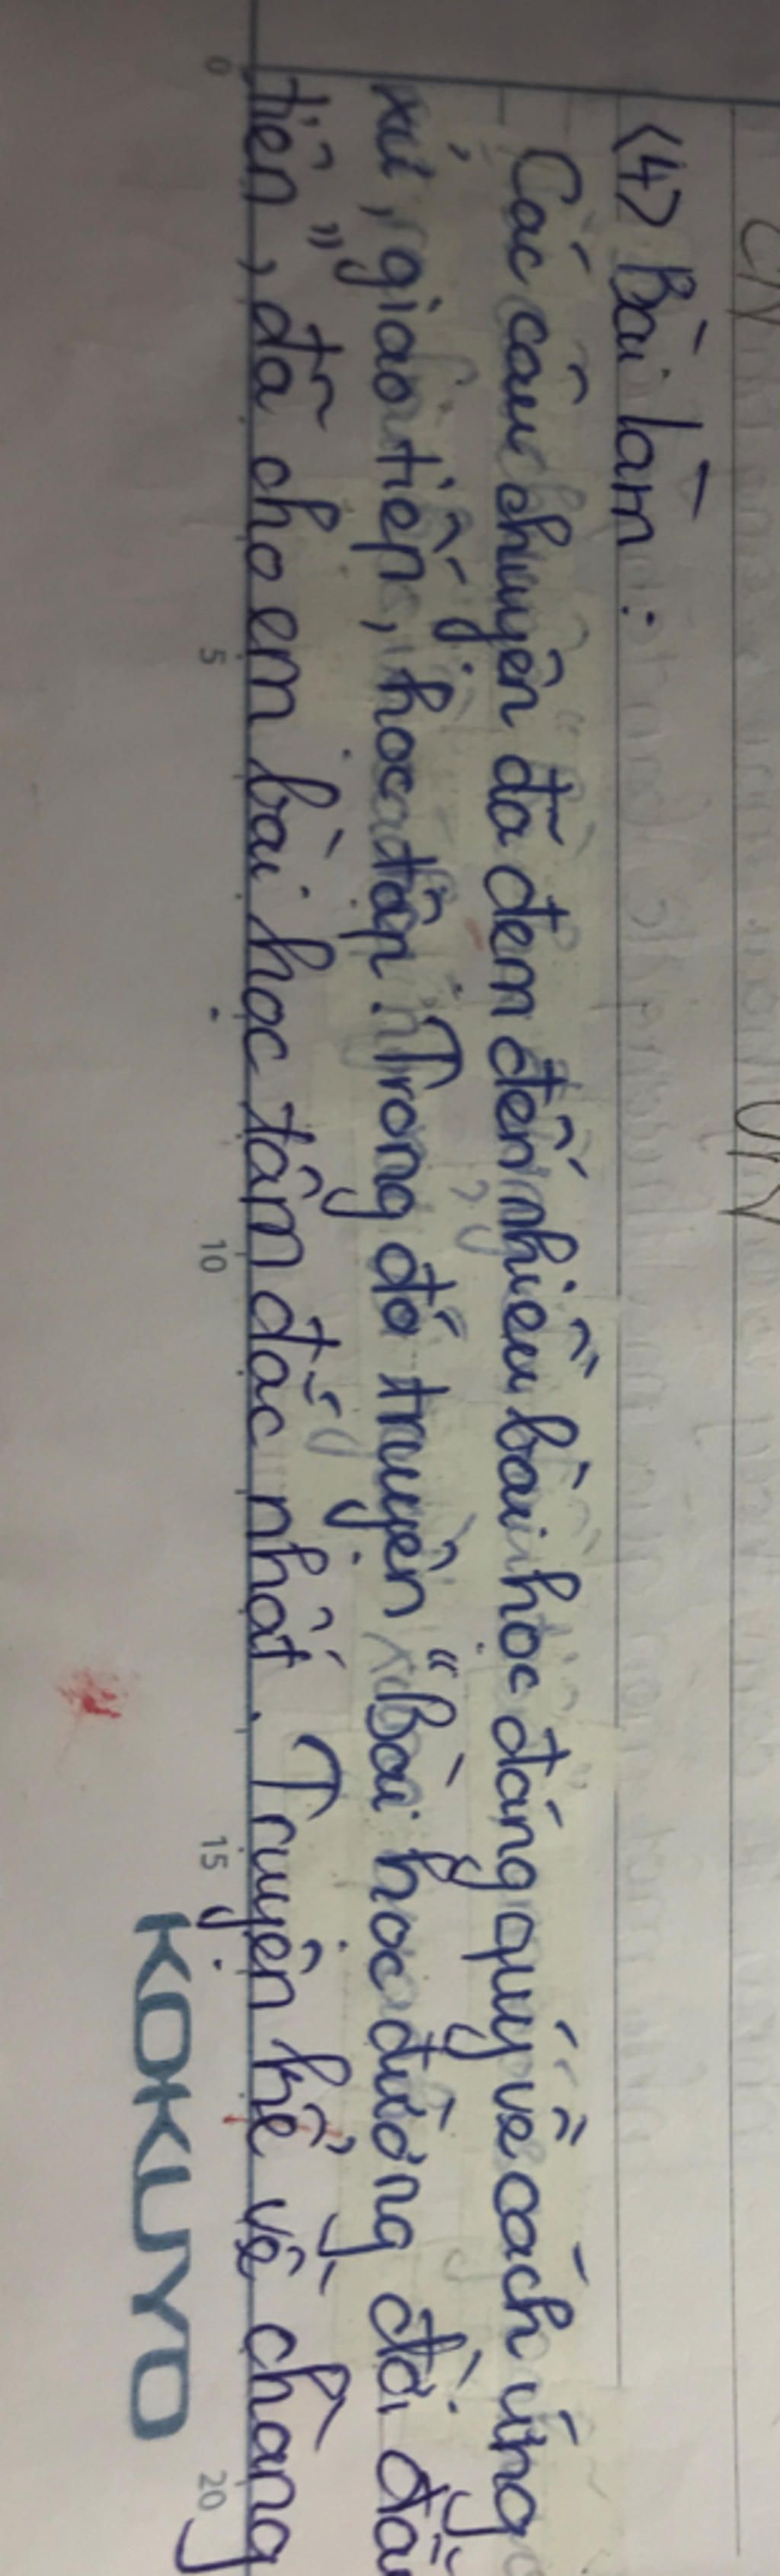 <4> Bài làm :
Các câu chuyện đã đem đến nhiều bài học đáng quý về cách ứng
xử, giao tiếp, học tập. Trong đó truyện "Bài học đường đời đầu
tiên", đã cho em bài học tâm đắc nhất. Truyện kể về chàng
0 5 10 15 20
KOKUYO